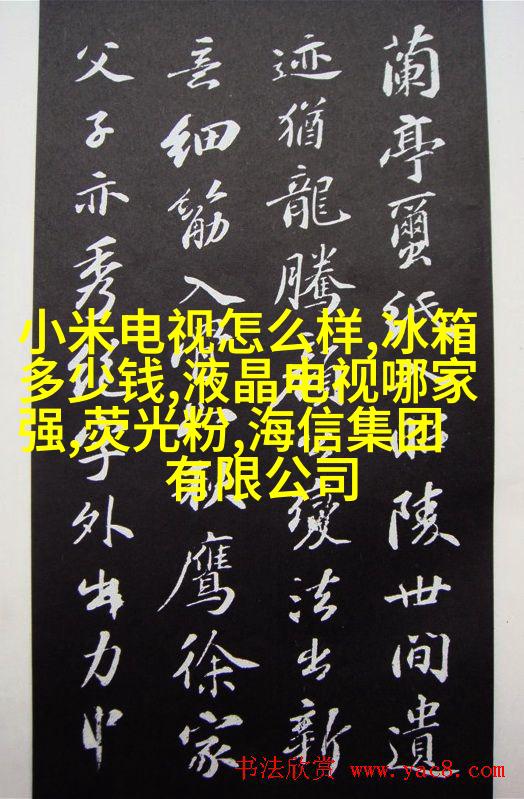 蘭亭蠒紙入昭陵世間遺
迹猶龍騰顏公變法出新
意細筋入骨秋鷹徐家
父子亦秀絕字外出力中
小米电视怎么样,冰箱
多少钱,液晶电视哪家
强,荧光粉,海信集团
有限公司
书法欣赏 www.yac8.com